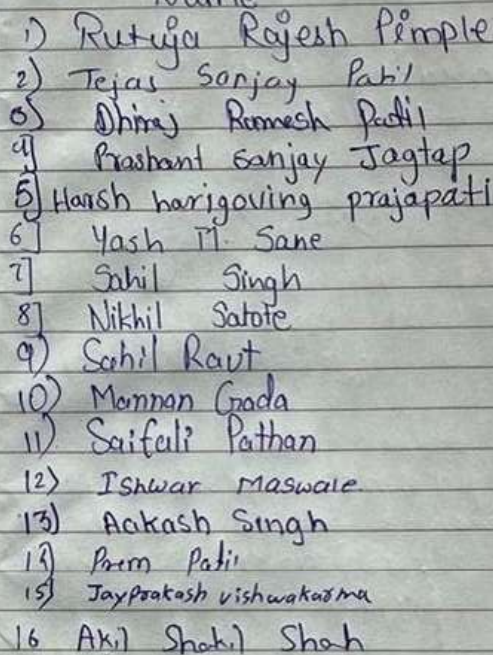 Name
1) Rutuja Rajesh Pimple
2) Tejas Sanjay Patil
3) Dhiraj Ramesh Patil
4] Prashant Sanjay Jagtap
5] Harsh harigoving prajapati
6] Yash M. Sane
7] Sahil Singh
8] Nikhil Satote
9) Sahil Raut
10) Mannan Gada
11) Saifali Pathan
12) Ishwar Maswale.
13) Aakash Singh
14) Prem Patil
15) Jayprakash vishwakarma
16 Akil Shakil Shah